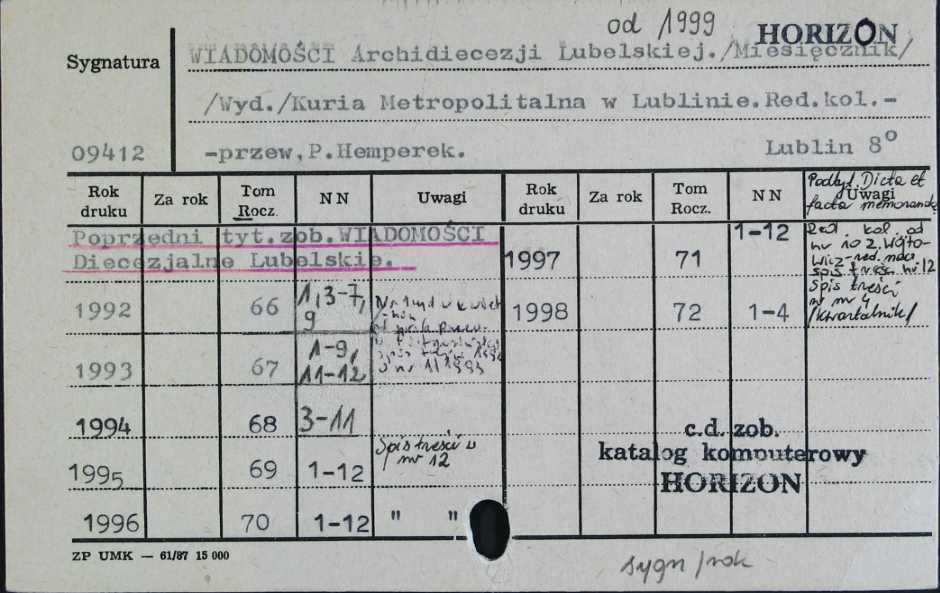 od 1999 HORIZON
Sygnatura WIADOMOŚCI Archidiecezji Lubelskiej./Miesięcznik/
/Wyd./Kuria Metropolitalna w Lublinie.Red.kol.-
09412 -przew,P.Hemperek. Lublin 8°
Rok druku Za rok Tom Rocz. NN Uwagi Rok druku Za rok Tom Rocz. NN Uwagi
Podtyt. Dicta et
facta memoranda
Poprzedni tyt.zob.WIADOMOŚCI
Diecezjalne Lubelskie.
1997 71 1-12 Red. kol. od
nr 10 Z. Wójto-
wicz-red. nacz.
spis treści nr 12
1992 66 1,3-7,
9
1998 72 1-4 Spis treści
w nr 4
/kwartalnik/
1993 67 1-9,
11-12
1994 68 3-11
1995 69 1-12 Spis treści w
nr 12
1996 70 1-12 " "
c.d. zob.
katalog komputerowy
HORIZON
ZP UMK — 61/87 15 000
sygn/rok